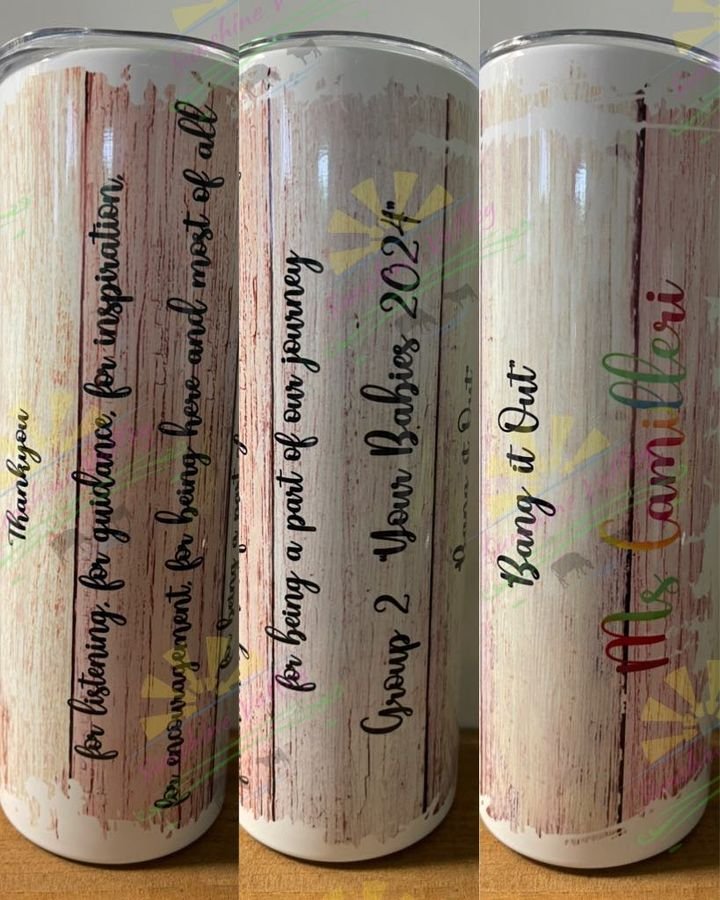 Thankyou
for listening, for guidance, for inspiration,
for encouragement, for being here and most of all
for being a part of our journey
Group 2 "Your Babies 2024"
Bang it Out"
Ms Camilleri